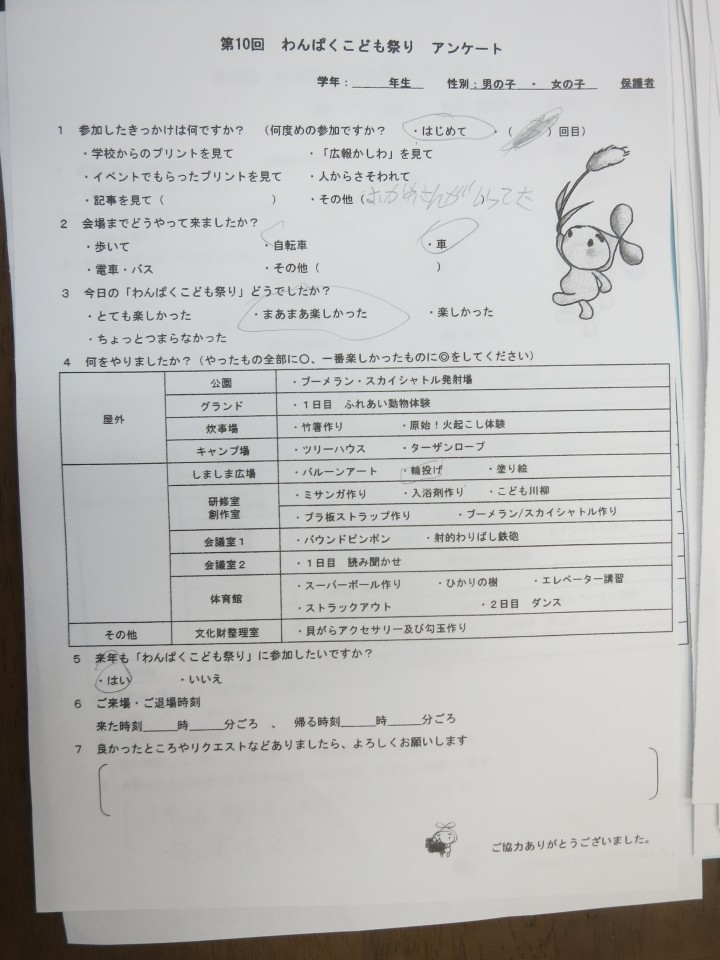 第10回　わんぱくこども祭り　アンケート
学年：　　　年生　　性別：男の子　・　女の子　　保護者
1　参加したきっかけは何ですか？　（何度めの参加ですか？　・はじめて　・（　　）回目）
・学校からのプリントを見て　・「広報かしわ」を見て
・イベントでもらったプリントを見て　・人からさそわれて
・記事を見て（　　　）　・その他（　　さんがいってた）
2　会場までどうやって来ましたか？
・歩いて　・自転車　・車
・電車・バス　・その他（　　　）
3　今日の「わんぱくこども祭り」どうでしたか？
・とても楽しかった　・まあまあ楽しかった　・楽しかった
・ちょっとつまらなかった
4　何をやりましたか？（やったもの全部に〇、一番楽しかったものに◎をしてください）
屋外　公園　・ブーメラン・スカイシャトル発射場
グランド　・１日目　ふれあい動物体験
炊事場　・竹箸作り　・原始！火起こし体験
キャンプ場　・ツリーハウス　・ターザンロープ
しましま広場　・バルーンアート　・輪投げ　・塗り絵
研修室　創作室　・ミサンガ作り　・入浴剤作り　・こども川柳
・プラ板ストラップ作り　・ブーメラン/スカイシャトル作り
会議室１　・バウンドピンポン　・射的わりばし鉄砲
会議室２　・１日目　読み聞かせ
体育館　・スーパーボール作り　・ひかりの樹　・エレベーター講習
・ストラックアウト　・２日目　ダンス
その他　文化財整理室　・貝がらアクセサリー及び勾玉作り
5　来年も「わんぱくこども祭り」に参加したいですか？
・はい　・いいえ
6　ご来場・ご退場時刻
来た時刻　　時　　分ごろ　、　帰る時刻　　時　　分ごろ
7　良かったところやリクエストなどありましたら、よろしくお願いします
ご協力ありがとうございました。